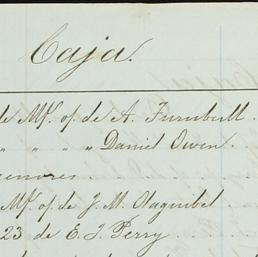 Caja.
de Mf. op. de A. Turnbull.
" " " " Daniel Owen.
enores
Mf. op. de J. M. Olaguibel.
23 de E. J. Perry